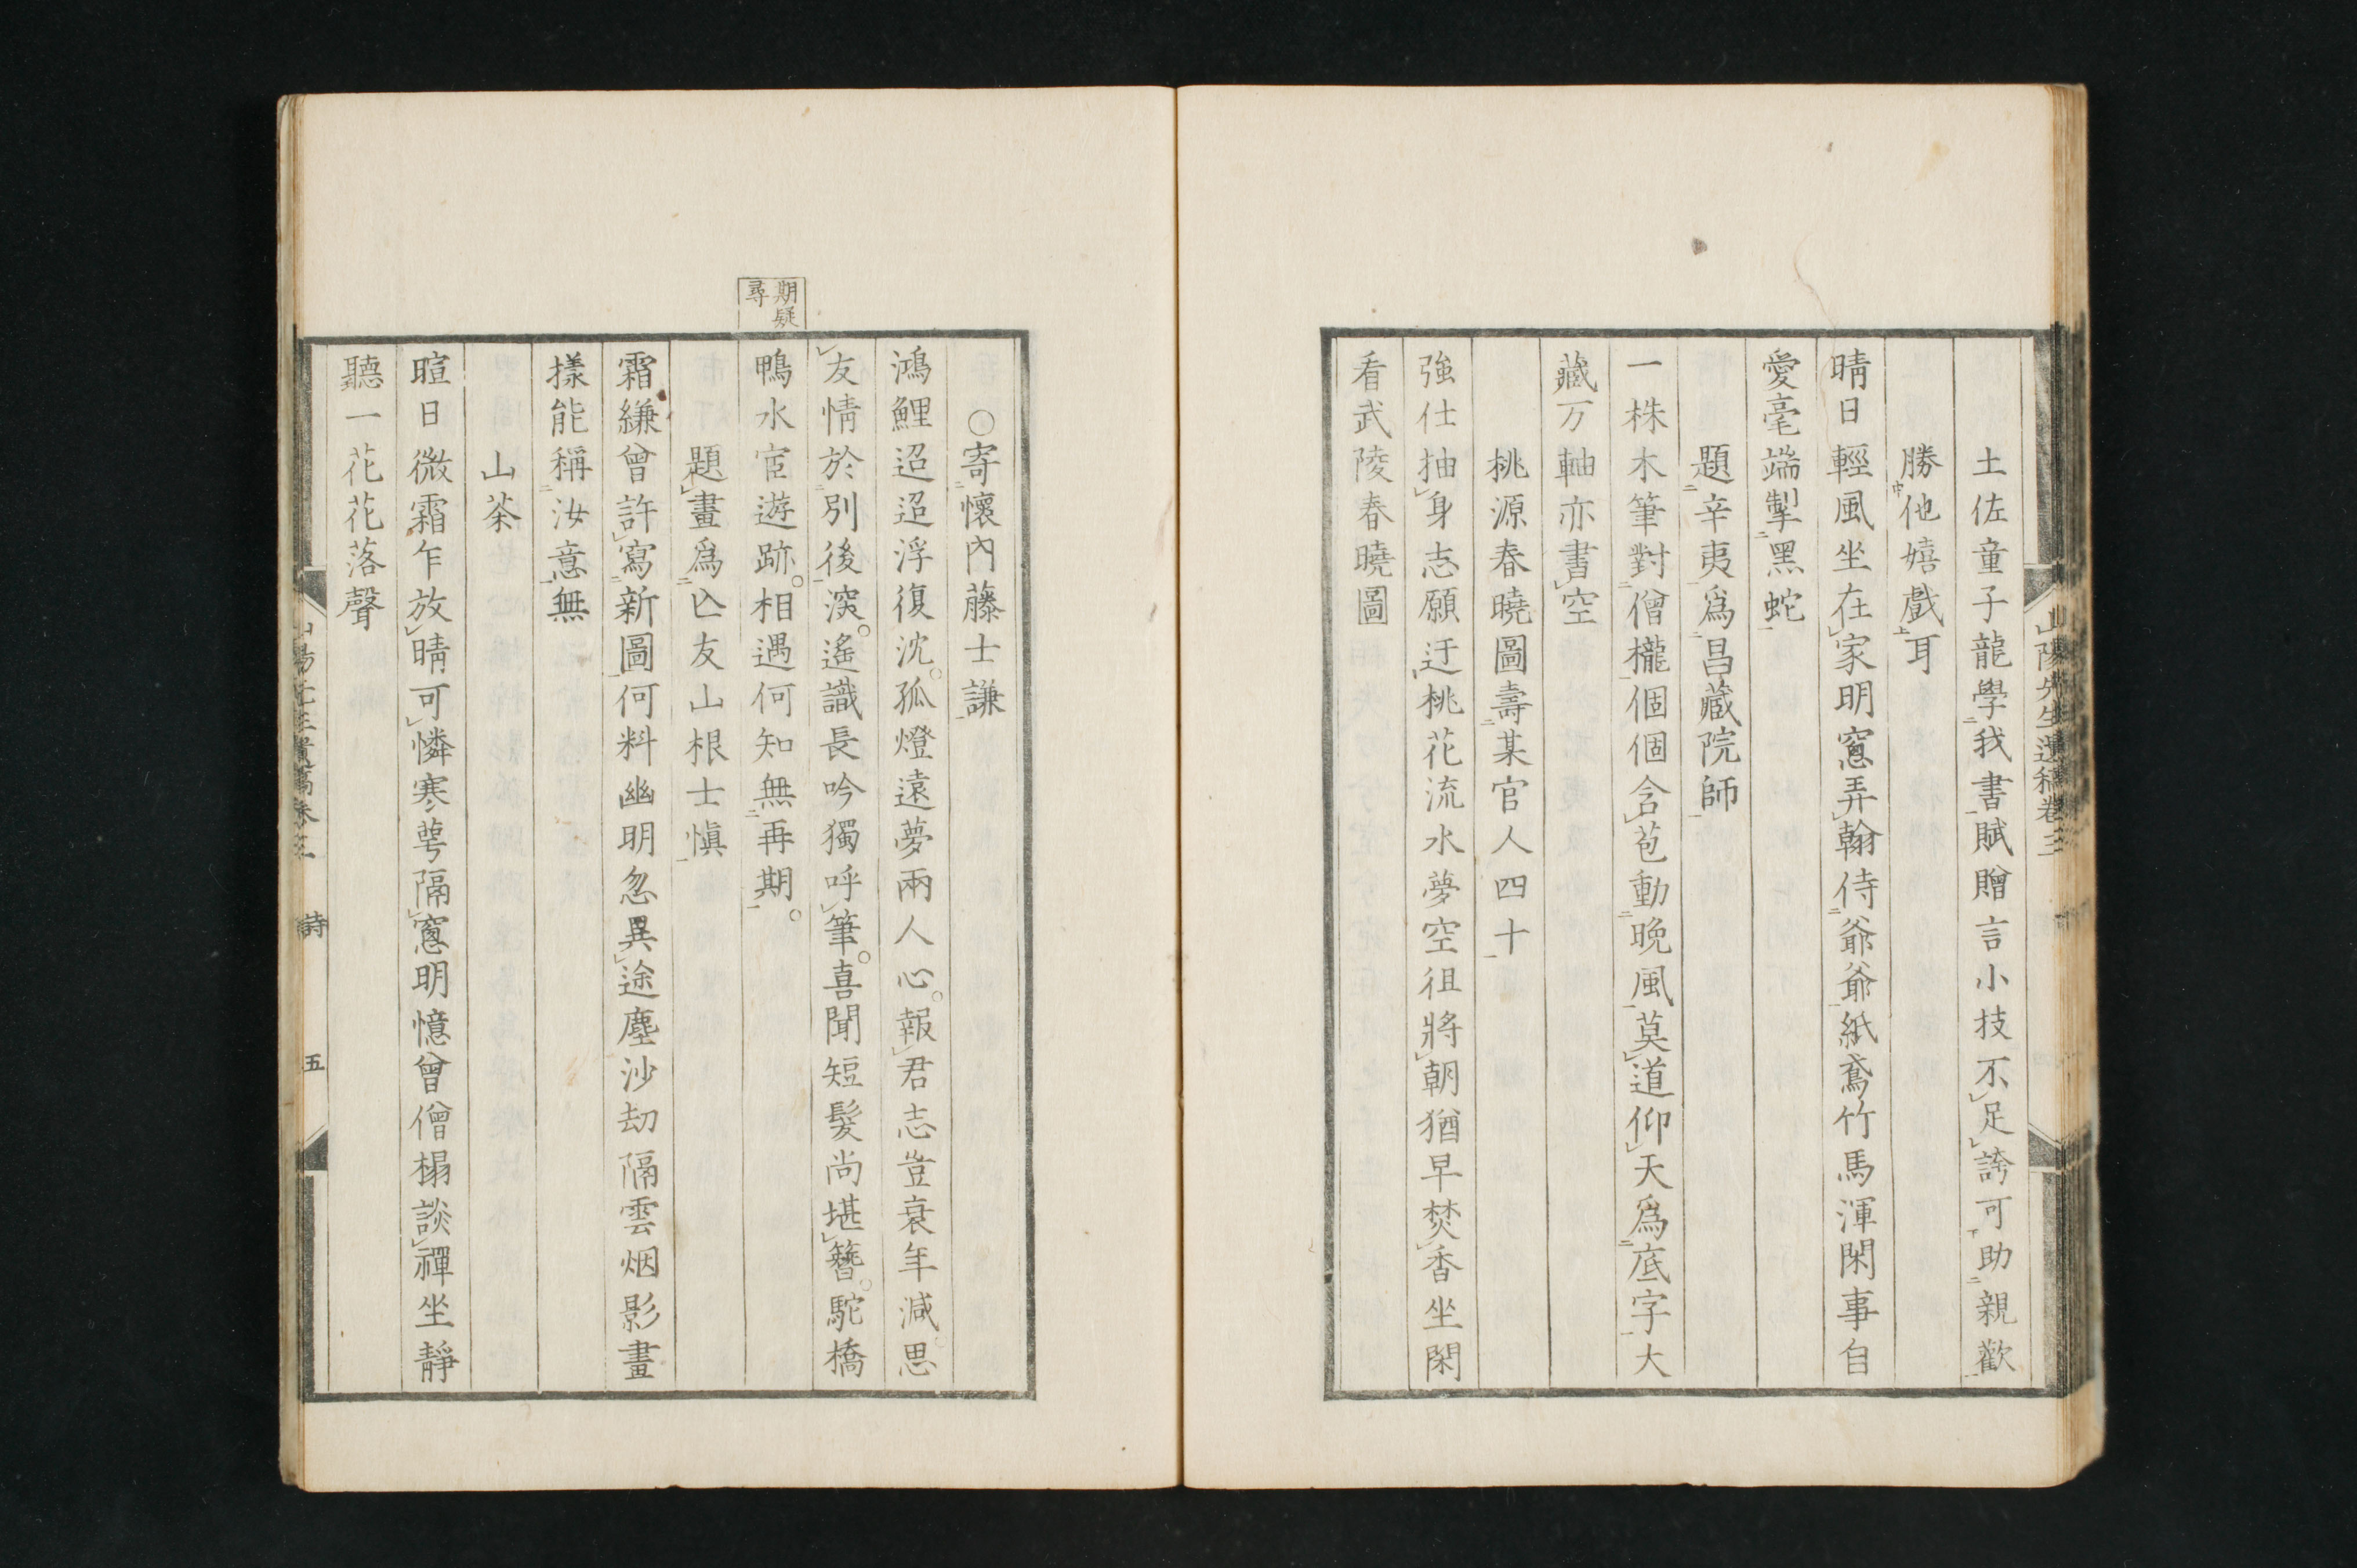 山陽先生遺稿卷三
土佐童子龍學二我書一賦贈言小技不レ足レ誇可下助二親歡一
勝中他嬉戲上耳
晴日輕風坐在レ家明窓弄レ翰侍二爺爺一紙鳶竹馬渾閑事自
愛毫端掣二黑蛇一
題二辛夷一爲二昌藏院師一
一株木筆對二僧櫳一個個含レ苞動二晚風一莫レ道仰レ天爲二底字一大
藏万軸亦書レ空
桃源春曉圖壽二某官人四十一
強仕抽レ身志願迂桃花流水夢空徂將レ朝猶早焚レ香坐閑
看武陵春曉圖
○寄二懷內藤士謙一
鴻鯉迢迢浮復沈。孤燈遠夢兩人心。報レ君志豈衰年減。思
レ友情於二別後一深。遙識長吟獨呼レ筆。喜聞短髮尚堪レ簪。駝橋
鴨水宦遊跡。相遇何知無二再期一。
期疑
尋
題レ畫爲二亾友山根士愼一
霜縑曾許レ寫二新圖一何料幽明忽異レ途塵沙劫隔雲烟影畫
樣能稱二汝意一無
山茶
暄日微霜乍放レ晴可レ憐寒萼隔レ窓明憶曾僧榻談レ禪坐靜
聽一花花落聲
山陽先生遺稿卷三 詩 五